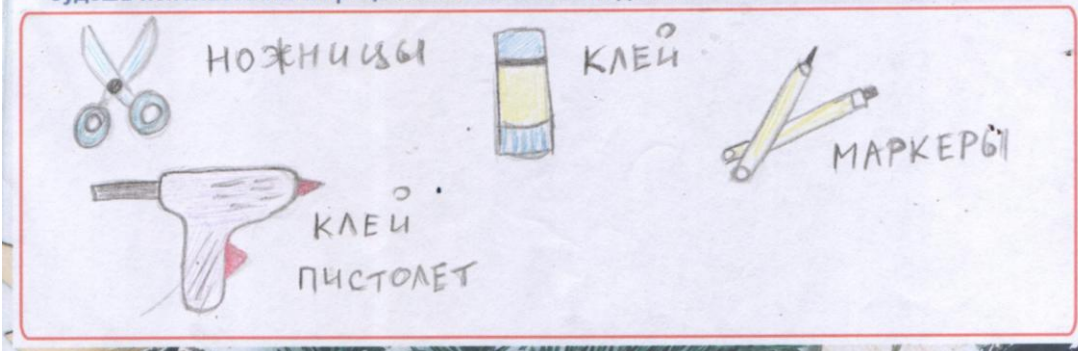 НОЖНИЦЫ
КЛЕЙ
МАРКЕРЫ
КЛЕЙ
ПИСТОЛЕТ